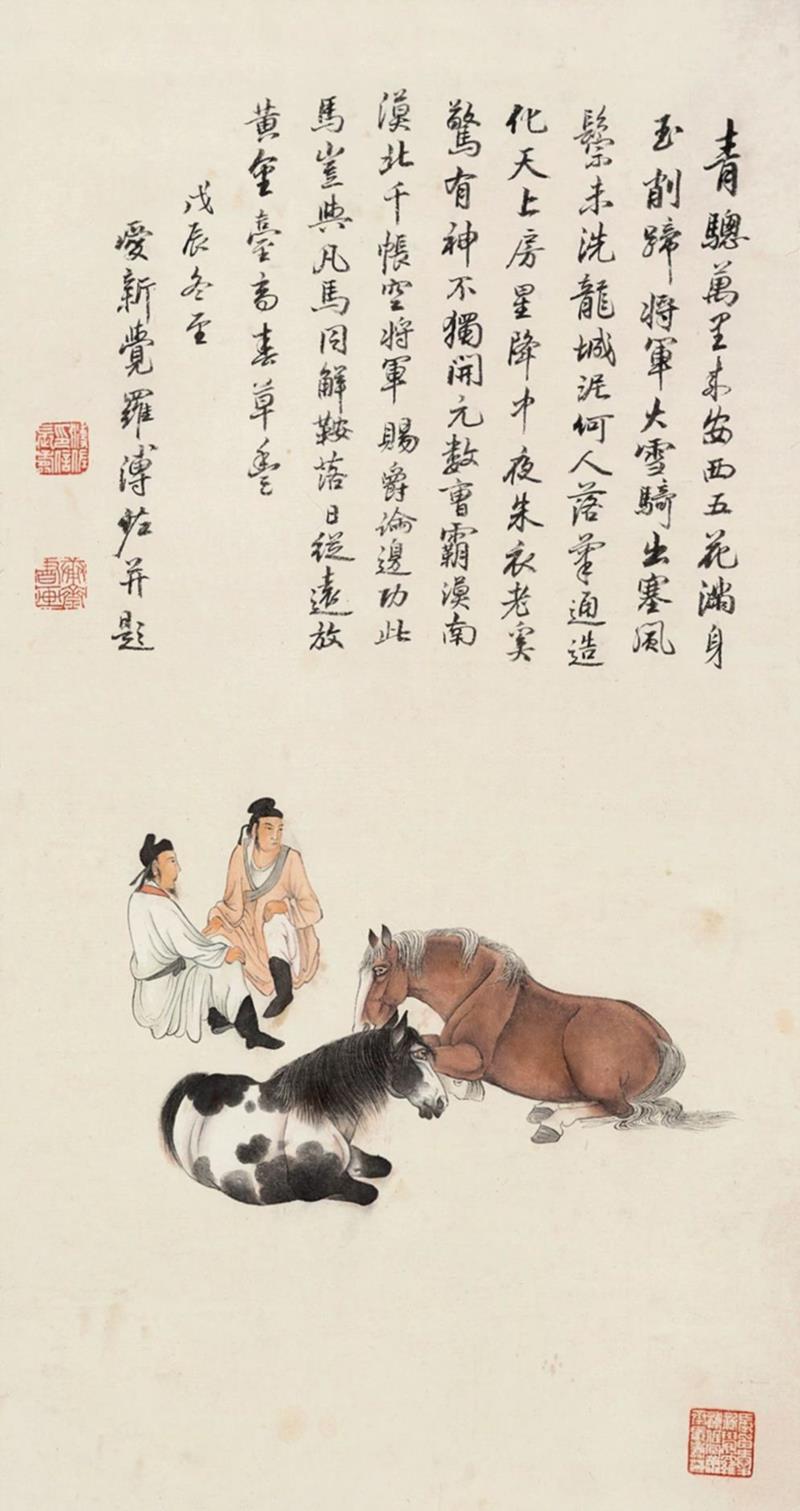 青驄萬里來安西五花滿身
玉削蹄將軍大雪騎出塞風
鬃未洗龍城泥何人落筆通造
化天上房星降中夜朱衣老奚
驚有神不獨開元數曹霸漠南
漠北千帳空將軍賜爵論邊功此
馬豈與凡馬同解鞍落日從遠放
黃金臺高春草豐
戊辰冬至
愛新覺羅溥佐并題